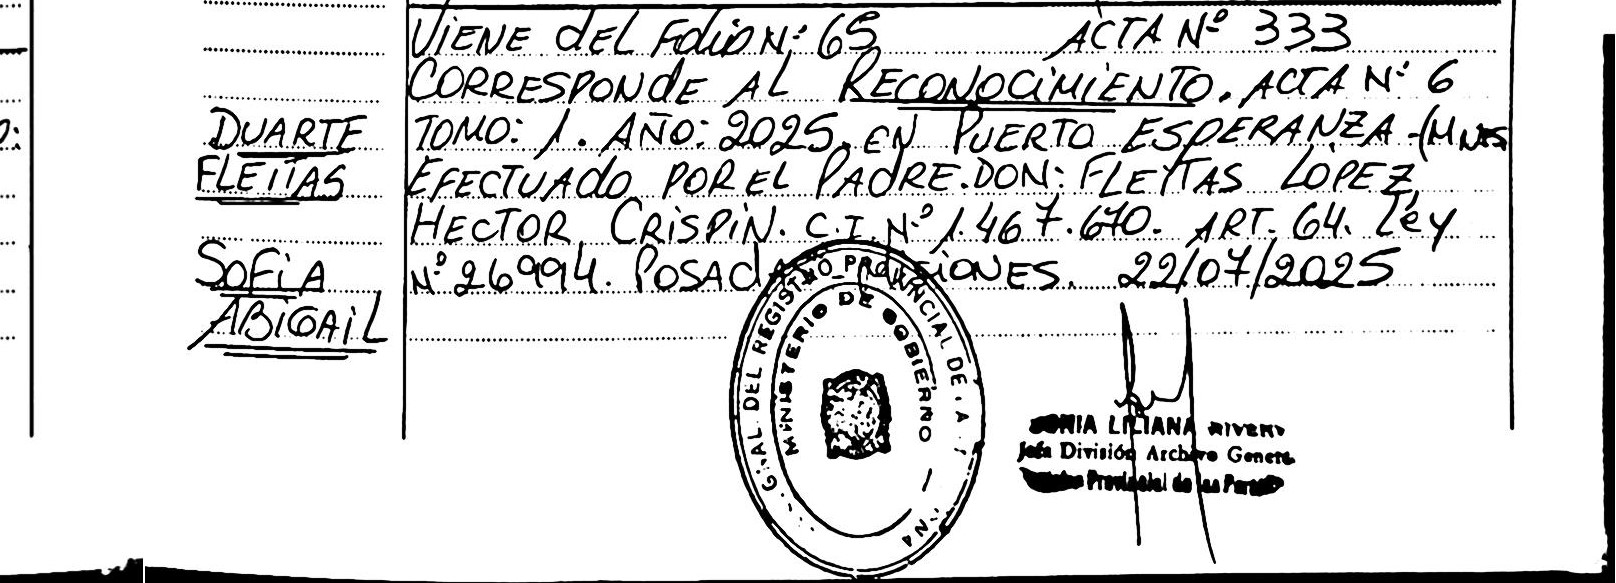 VIENE dEL FOLIO N: 65 ACTA Nº 333
CORRESPONDE AL RECONOCIMIENTO. ACTA Nº 6
TOMO: 1. AÑO: 2025. EN PUERTO ESPERANZA-(MNES
EFECTUADO POR EL PADRE. DON: FLEYTAS LOPEZ,
HECTOR CRISPIN. C.I. Nº 1.467.670. ART. 64. Ley
Nº 26994. POSADAS MISIONES. 22/07/2025
DUARTE
FLEITAS
SOFIA
ABIGAIL
GRAL DEL REGISTRO PROVINCIAL DE LA
MINISTERIO DE GOBIERNO
SONIA LILIANA RIVERO
Jefa División Archivo General
Provincial de las Personas